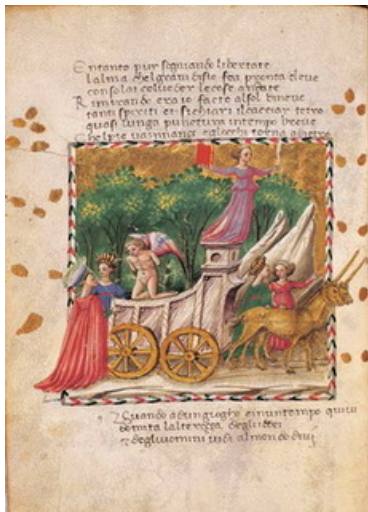 Entanto pur sognando libertate
lalma chelgran disie fea pronta eleue
consolai colueder lecose andate
Rimirando era io facto alsol dineue
tanti spirti et sichiari carcer tetro
quasi lunga pictura intempo breue
Chelpie ua innanzi torna adietro
Quando adungiogho etinuntempo quiui
domita lalterezza deglidei
degliuomini uidi almondo diui